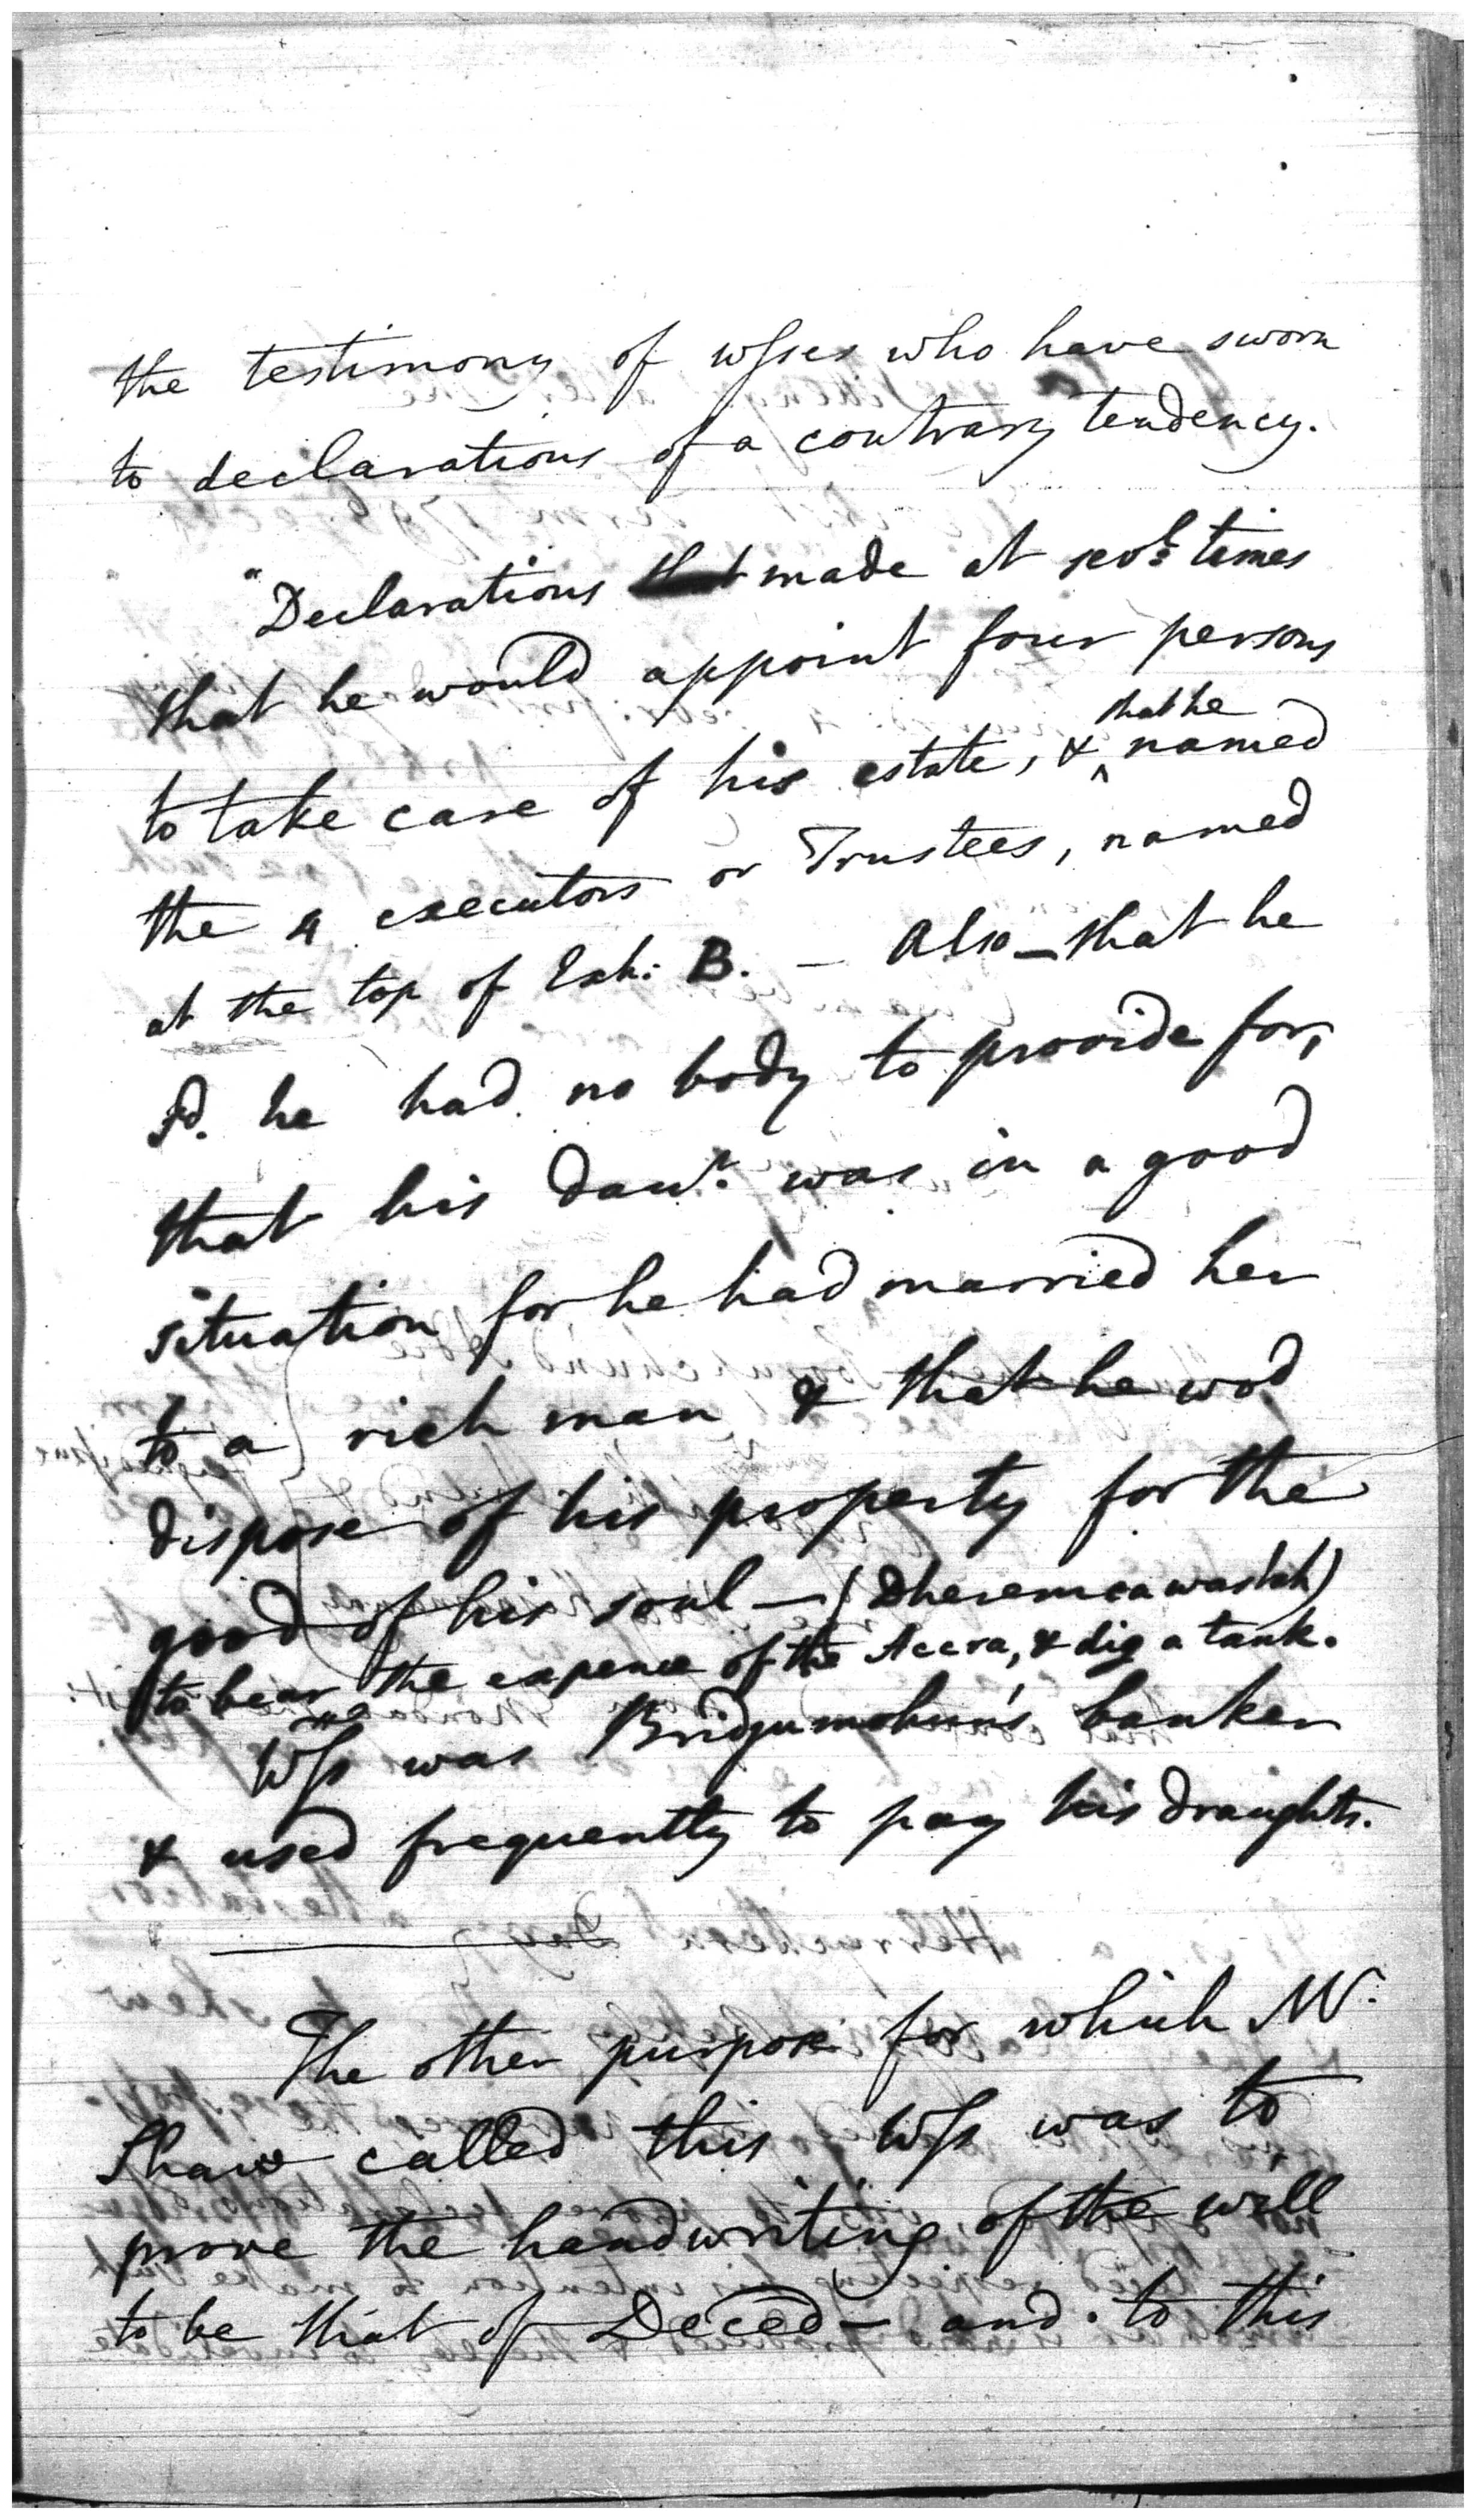 the testimony of wſses who have sworn
to declarations of a contrary tendency.
"Declarations made at sevl. times
that he would appoint four persons
to take care of his estate, & that he named
the 4 executors or Trustees, named
at the top of Exh: B. — Also — that he
sd. he had no body to provide for,
that his daur. was in a good
situation for he had married her
to a rich man & that he wod
dispose of his property for the
good of his soul — (Dheremcawastah)
to bear the expence of the Accra, & dig a tank.
Wſs was Bridjumohun's banker
& used frequently to pay his draughts.
The other purpose for which Mr.
Shaw called this Wſs was to
prove the handwriting of the will
to be that of Deced — and to this